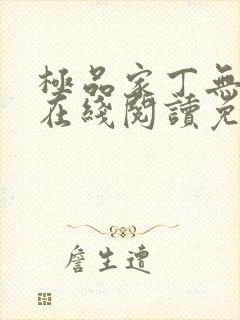 極品家丁無
在綫閱讀免
詹生遭